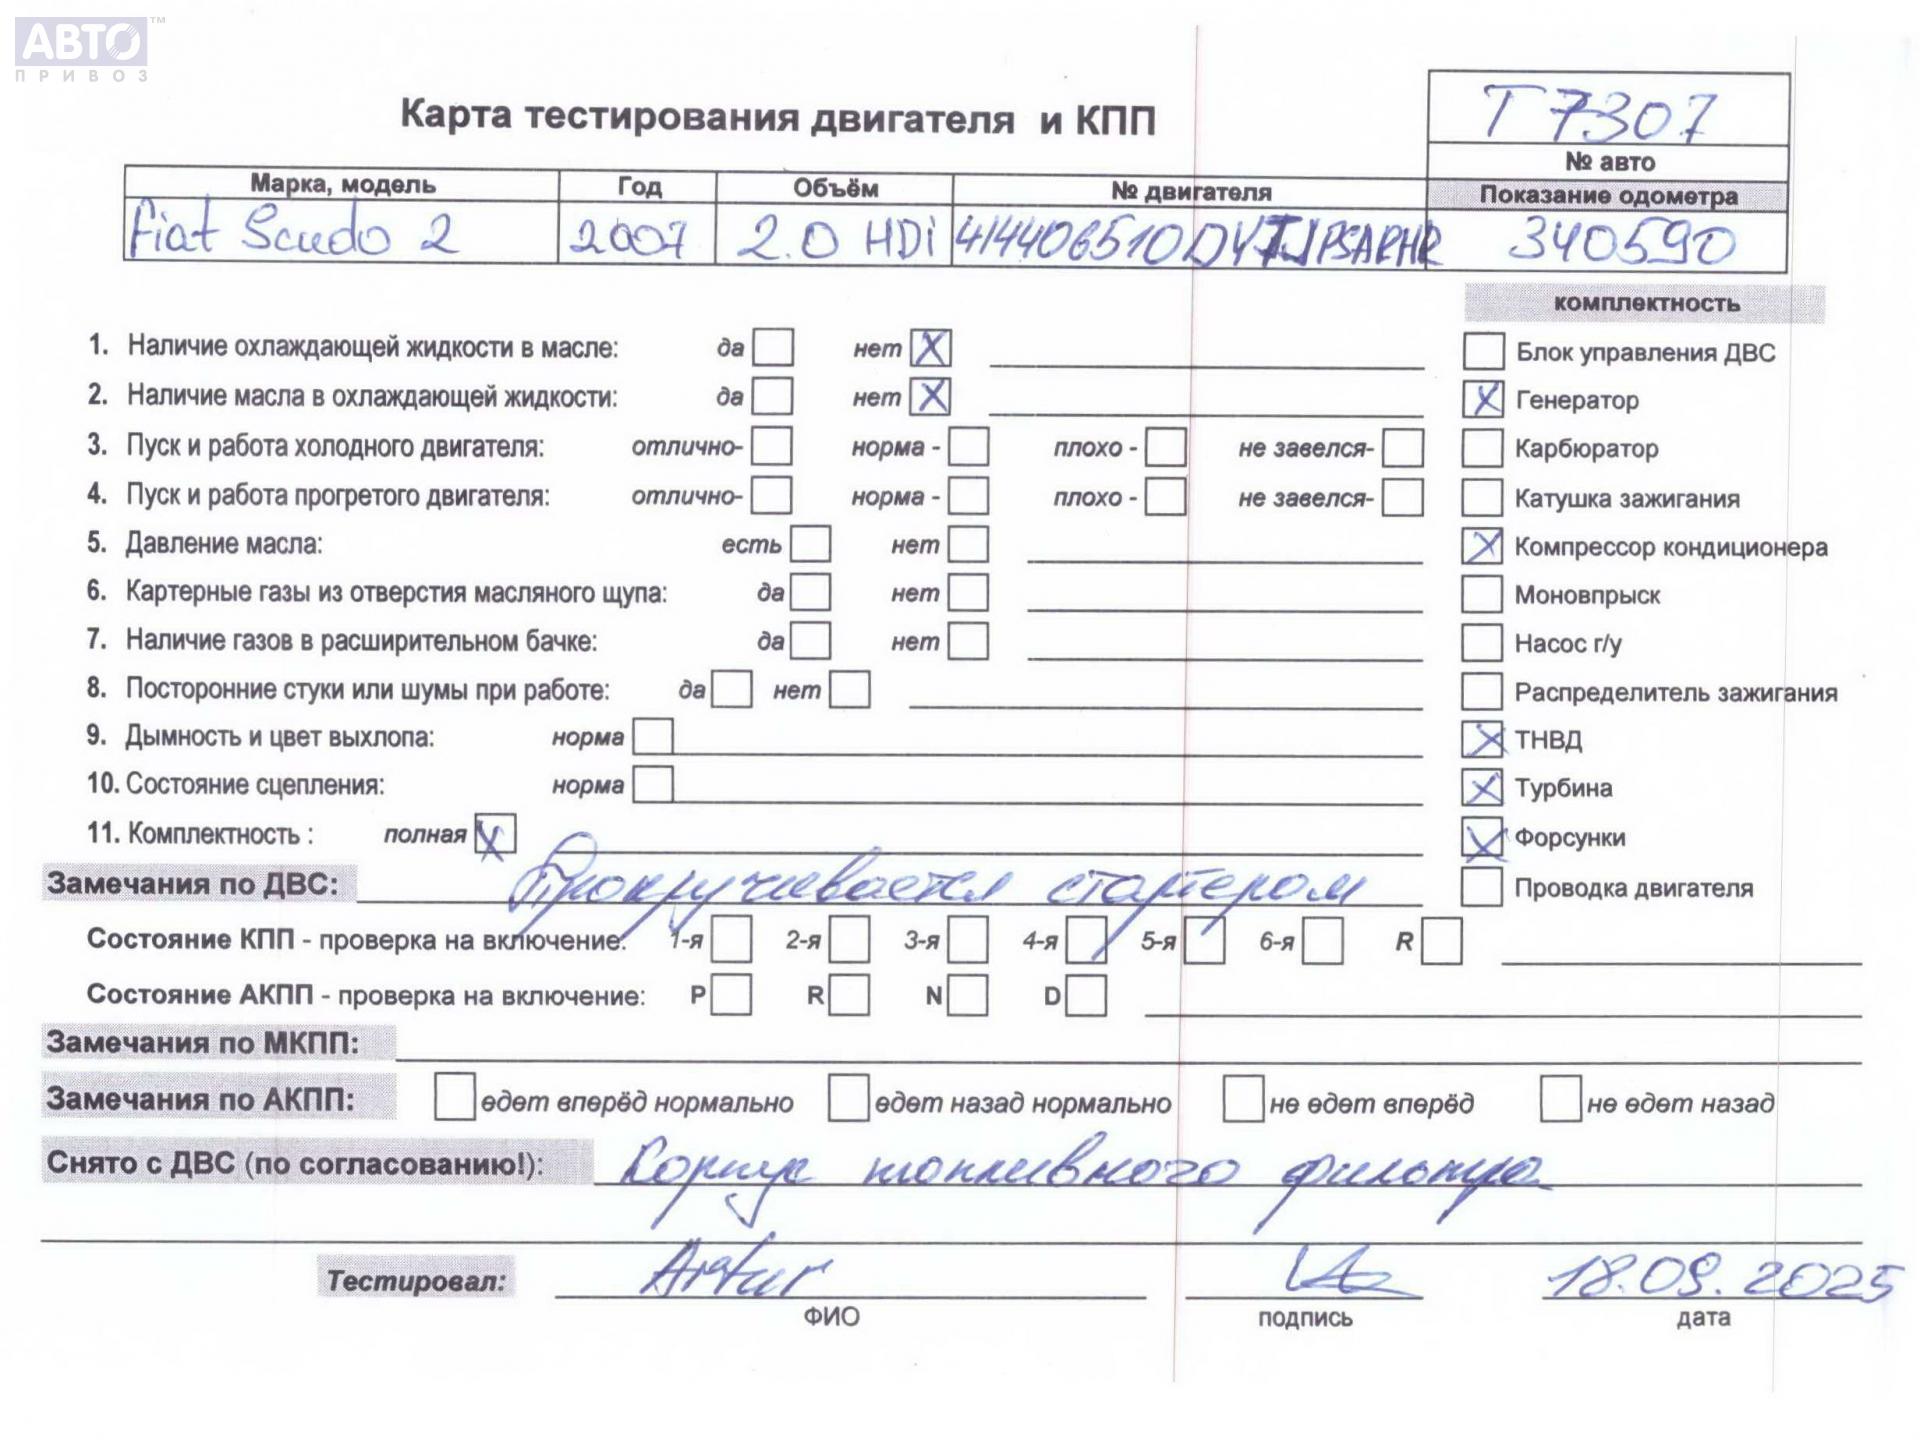 АВТО™
ПРИВОЗ
Т 7307
Карта тестирования двигателя и КПП
№ авто
Марка, модель Год Объём № двигателя Показание одометра
Fiat Scudo 2 2007 2.0 HDi 340590
комплектность
1. Наличие охлаждающей жидкости в масле: да нет X Блок управления ДВС
2. Наличие масла в охлаждающей жидкости: да нет X X Генератор
3. Пуск и работа холодного двигателя: отлично- норма - плохо - не завелся- Карбюратор
4. Пуск и работа прогретого двигателя: отлично- норма - плохо - не завелся- Катушка зажигания
5. Давление масла: есть нет X Компрессор кондиционера
6. Картерные газы из отверстия масляного щупа: да нет Моновпрыск
7. Наличие газов в расширительном бачке: да нет Насос г/у
8. Посторонние стуки или шумы при работе: да нет Распределитель зажигания
9. Дымность и цвет выхлопа: норма X ТНВД
10. Состояние сцепления: норма X Турбина
11. Комплектность : полная X X Форсунки
Замечания по ДВС: Прокручивается стартером Проводка двигателя
Состояние КПП - проверка на включение: 1-я 2-я 3-я 4-я 5-я 6-я R
Состояние АКПП - проверка на включение: P R N D
Замечания по МКПП:
Замечания по АКПП: едет вперёд нормально едет назад нормально не едет вперёд не едет назад
Снято с ДВС (по согласованию!): Корпус топливного фильтра
Тестировал: Artur 18.09.2025
ФИО подпись дата